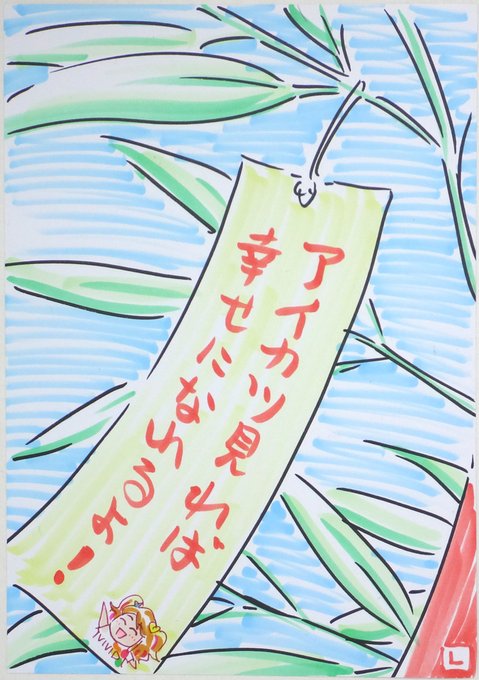 アイカツ見れば
幸せになれるよ！
Vivid
L